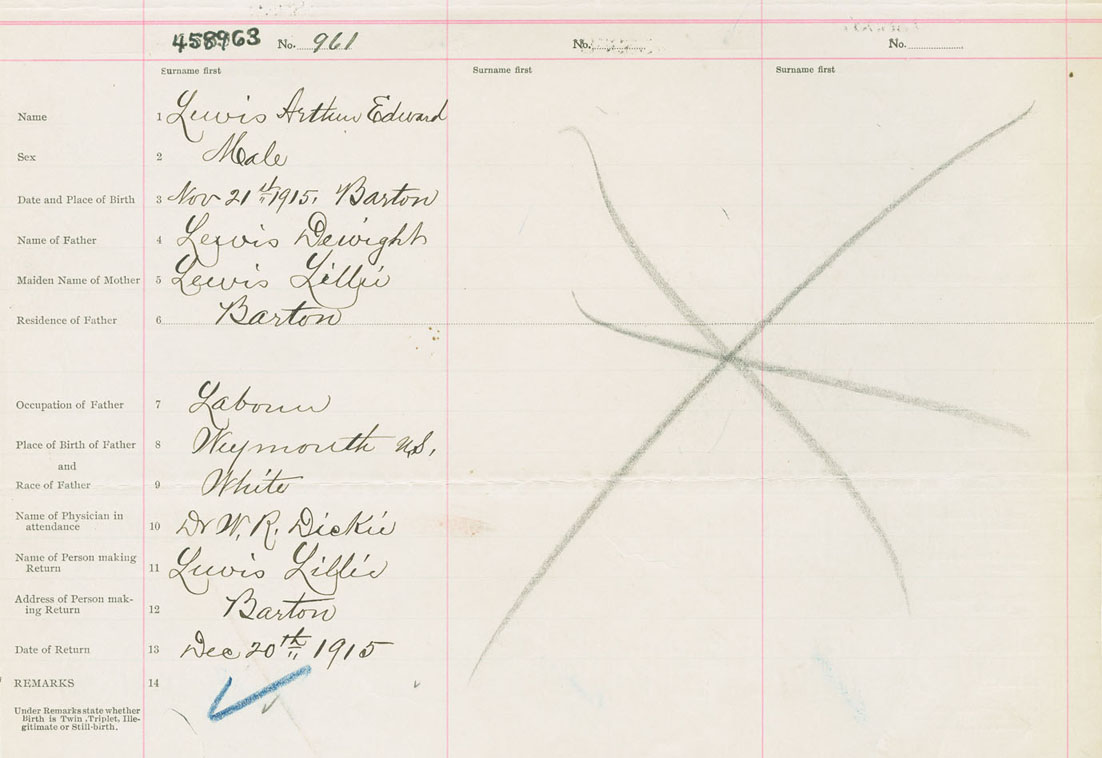 458963 No. 961 No. No.
Surname first Surname first Surname first
Name 1 Lewis Arthur Edward
Sex 2 Male
Date and Place of Birth 3 Nov 21st 1915, Barton
Name of Father 4 Lewis Dewight
Maiden Name of Mother 5 Lewis Lillie
Residence of Father 6 Barton
Occupation of Father 7 Labourer
Place of Birth of Father 8 Weymouth N.S.
and
Race of Father 9 White
Name of Physician in
attendance 10 Dr W. R. Dickie
Name of Person making
Return 11 Lewis Lillie
Address of Person mak-
ing Return 12 Barton
Date of Return 13 Dec 20th 1915
REMARKS 14
Under Remarks state whether
Birth is Twin, Triplet, Ille-
gitimate or Still-birth.